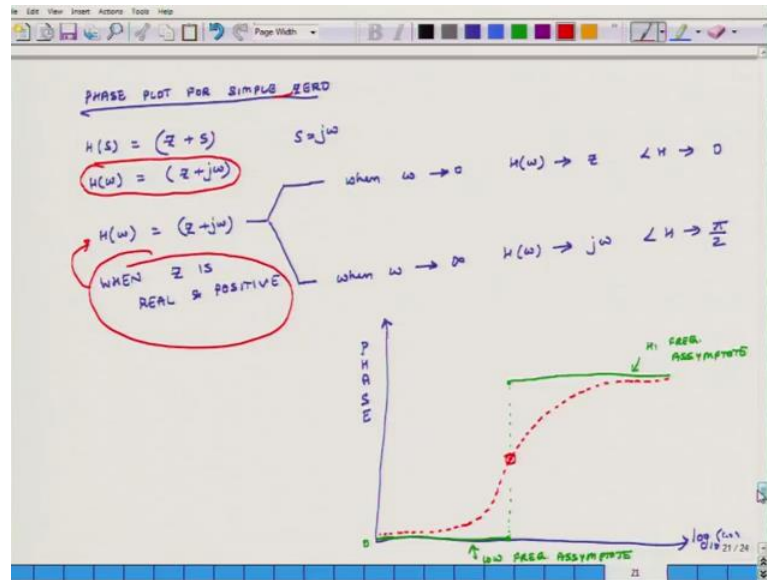 File Edit View Insert Actions Tools Help
Page Width
B I
PHASE PLOT FOR SIMPLE ZERO
H(s) = (z + s) s = jω
H(ω) = (z + jω)
when ω → 0 H(ω) → z ∠H → 0
H(ω) = (z + jω)
when ω → ∞ H(ω) → jω ∠H → π/2
WHEN z IS
REAL & POSITIVE
HI FREQ
ASSYMPTOTE
PHASE
0
LOW FREQ ASSYMPTOTE
21 / 24
21